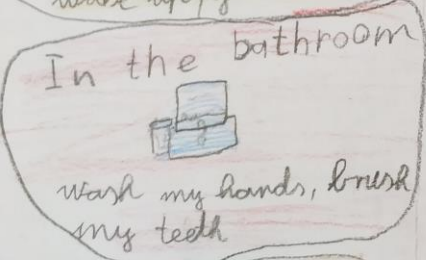 In the bathroom
wash my hands, brush
my teeth